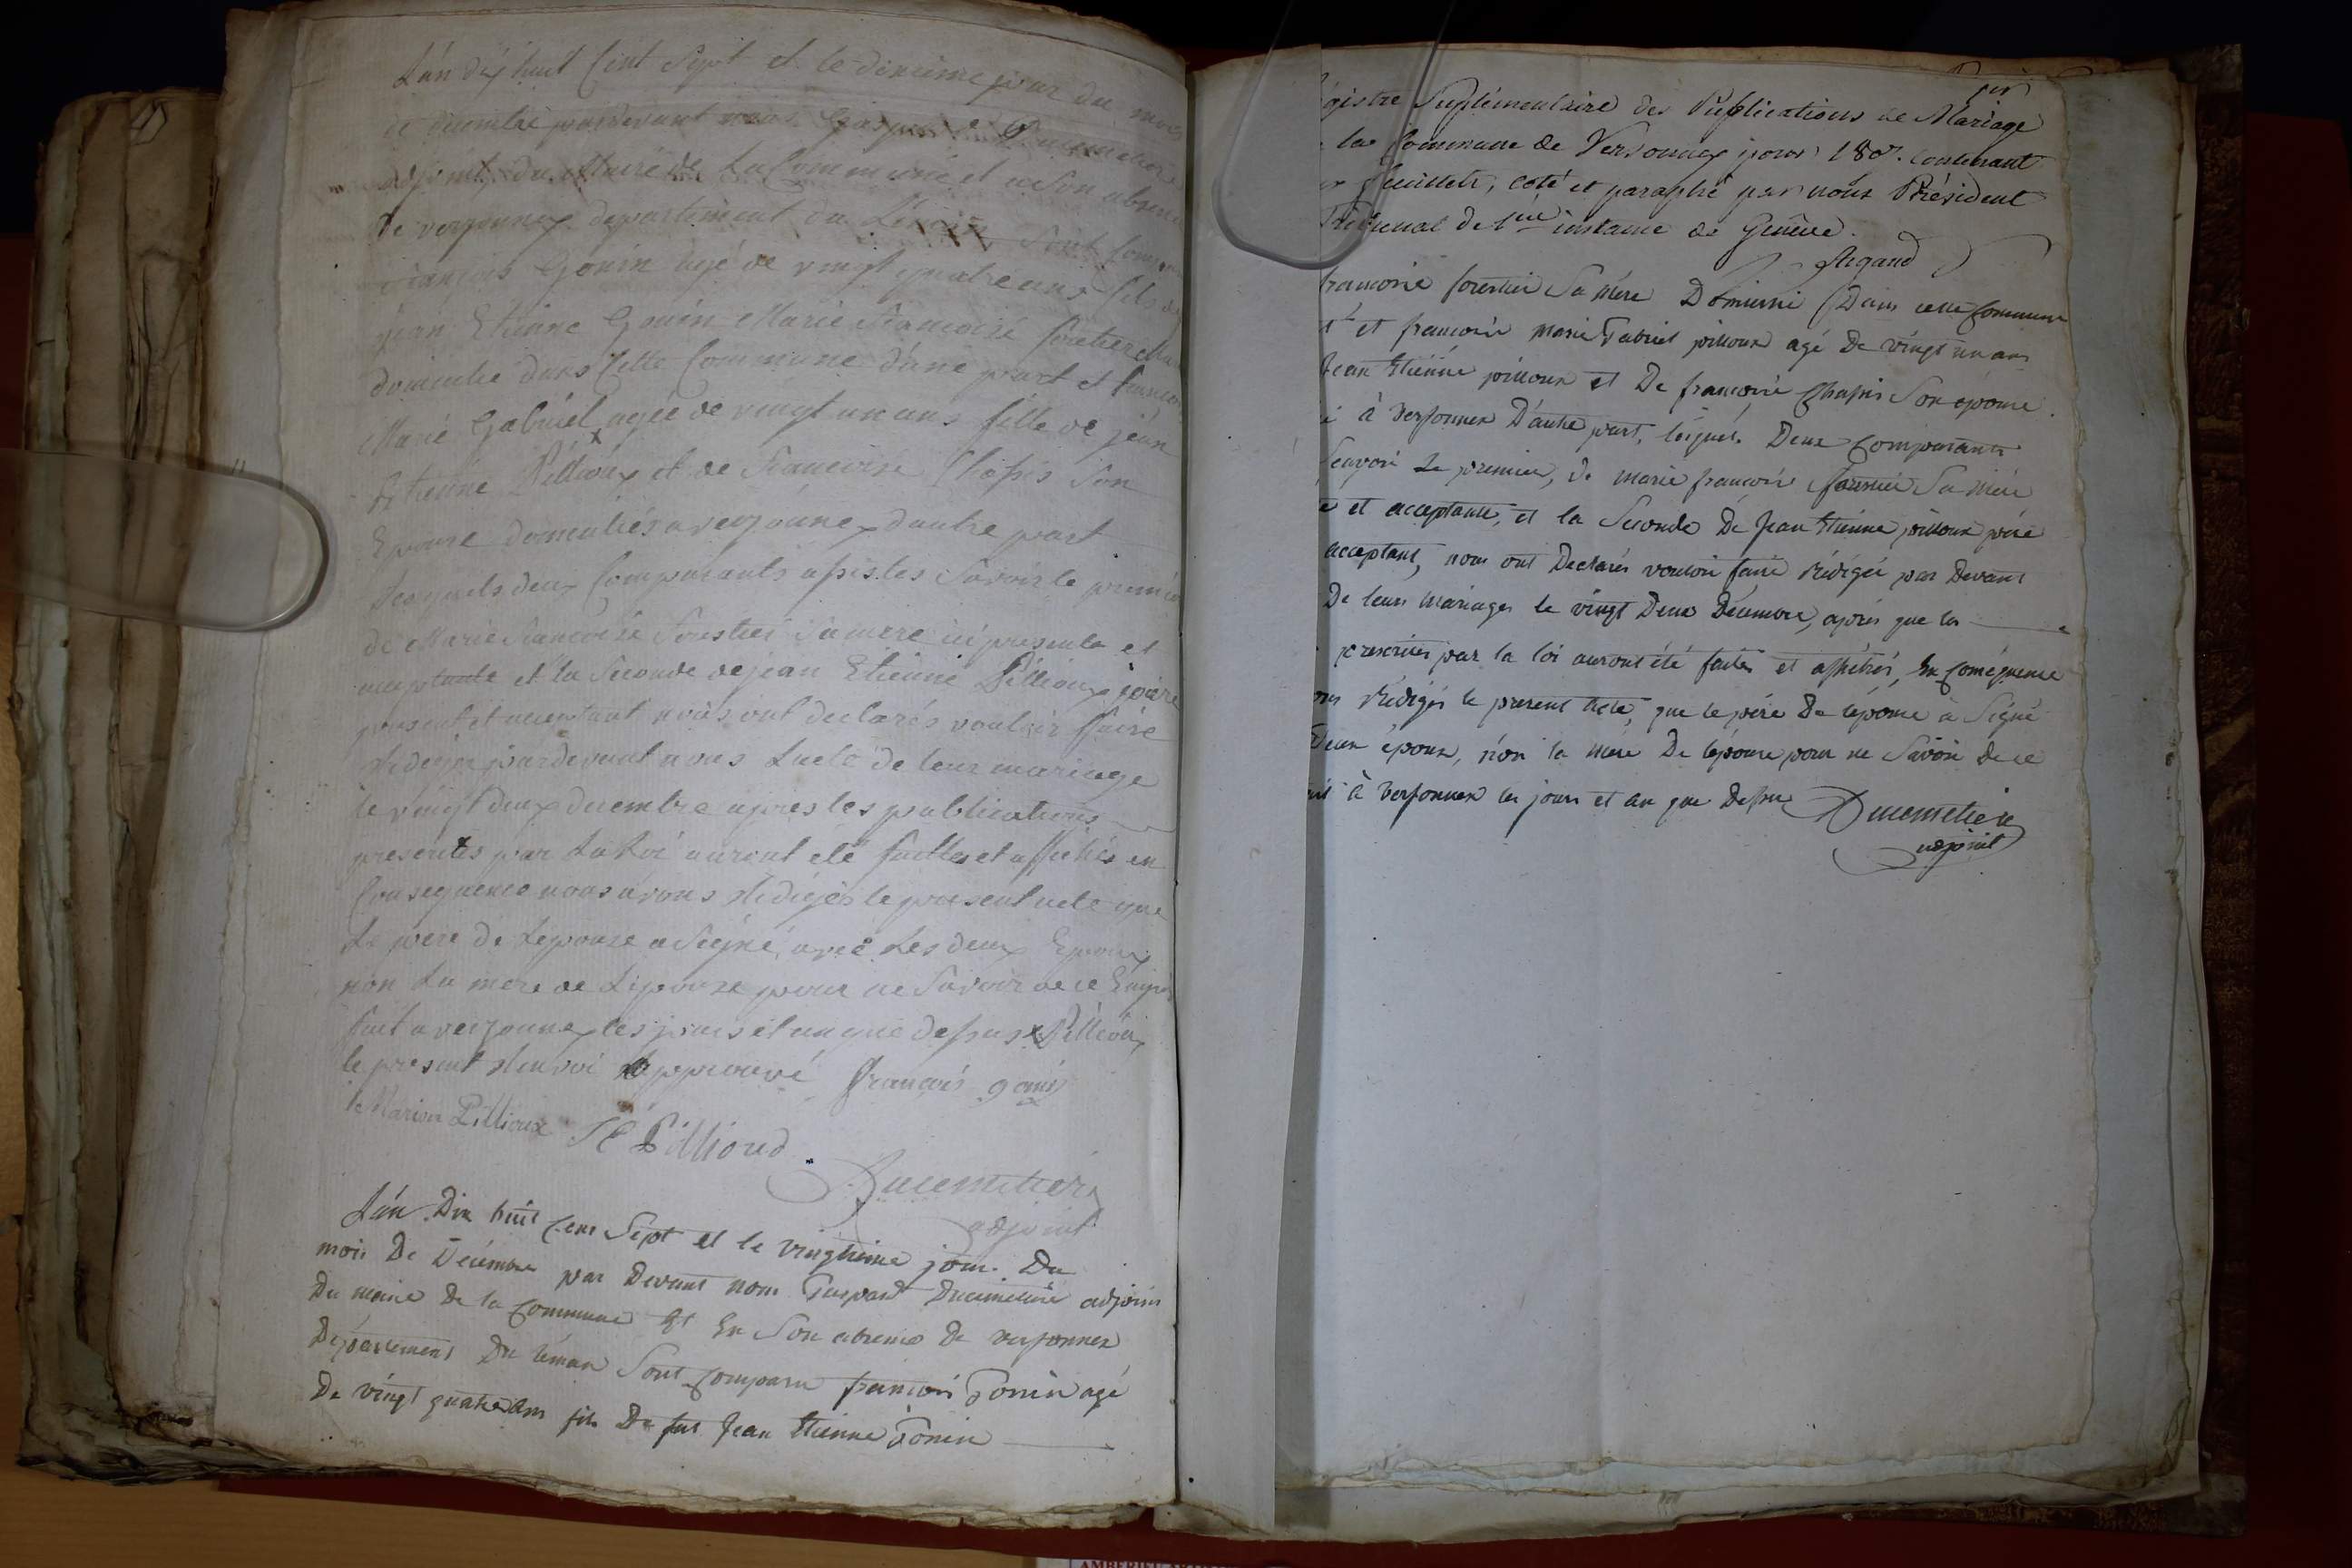 L'an dix huit Cent Sept et le dixieme jour du mois
de decembre pardevant nous Gaspard Ducimetiere
adjoint du Maire de La Commune et a Son absence
de verzonnex departement du Léman Sont Comparu
françois Gonin agé de vingt quatre ans fils de
jean Etienne Gonin Marie Francoise
domicilie dans Cette Commune d'une part et francoise
Marie Gabriel agée de vingt un ans fille de jean
Etienne Pillioux et de Francoise Chapis Son
Epouse domiciliés a verzonnex dautre part
Lesquels deux Comparants assistes Savoir le premier
de Marie Francoise Forestier Sa mere ici presente et
acceptante et la Seconde de jean Etienne Pillioux père
present et acceptant nous ont declarés vouloir faire
Rediger pardevant nous Lacte de leur mariage
le vingt deux decembre apres les publications
prescrites par La Loi auront été faittes et affichés en
Consequence nous avons Redigés le present acte que
Le pere de Lepouse a Signé avec Les deux Epoux
non La mere de Lepouze pour ne Savoir de ce Enquis
fait a verzonnex les jours et an que dessus x Pillioux
le present Renvoi Approuvé françois gonin
Marion Pillioux J E Pillioud
Ducemetiere
adjoint
L'án Dix huit Cens Sept et le vingtieme jour Du
mois De Décémbre par Devant nous Gaspard Ducimetiere adjoint
Du maire De la Commune Et En Son absence De versonnex
Département Du léman Sont Comparu françois Gonin agé
De vingt quatre Ans fils De fut Jean Etienne Gonin
gistre Suplémentaire des Publications de Mariage
la Commune de Versonnex pour 1807. contenant
feuillets, coté et paraphé par nous Président
Tribunal de 1ere instance de Genève.
Argand
francoise forestier Sa Mére Domicilié Dans cette Commune
et francoise marie Gabriel pilloux agé De vingt un ans
Jean Etiénne pilloux et De francoise Chapis Son épouse
à versonnex D'autre part, lesquels Deux Comparants
Scavoir Le premier, De marie francoise forestier Sa Mére
et acceptante, et la Seconde De Jean Etienne pilloux pére
acceptant, nous ont Declarés vouloir faire Rédigée par Devant
De leurs mariages le vingt Deux Décembre, aprés que les
prescrites par la loi auront été faites et affichés, En Conséquence
Rédigés le present Acte, que le pére De lépouse à Signé
Deux époux, non la mére De lépouse pour ne Savoir De ce
à versonnex les jours et an que Dessus Ducemetiere
adjoint